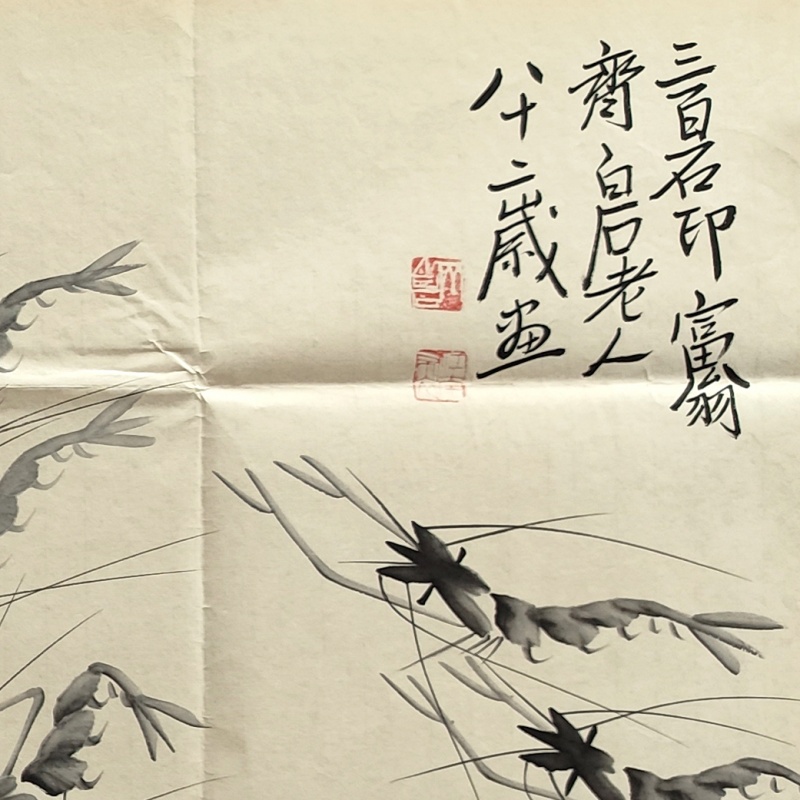 三百石印富翁
齊白石老人
八十二歲画